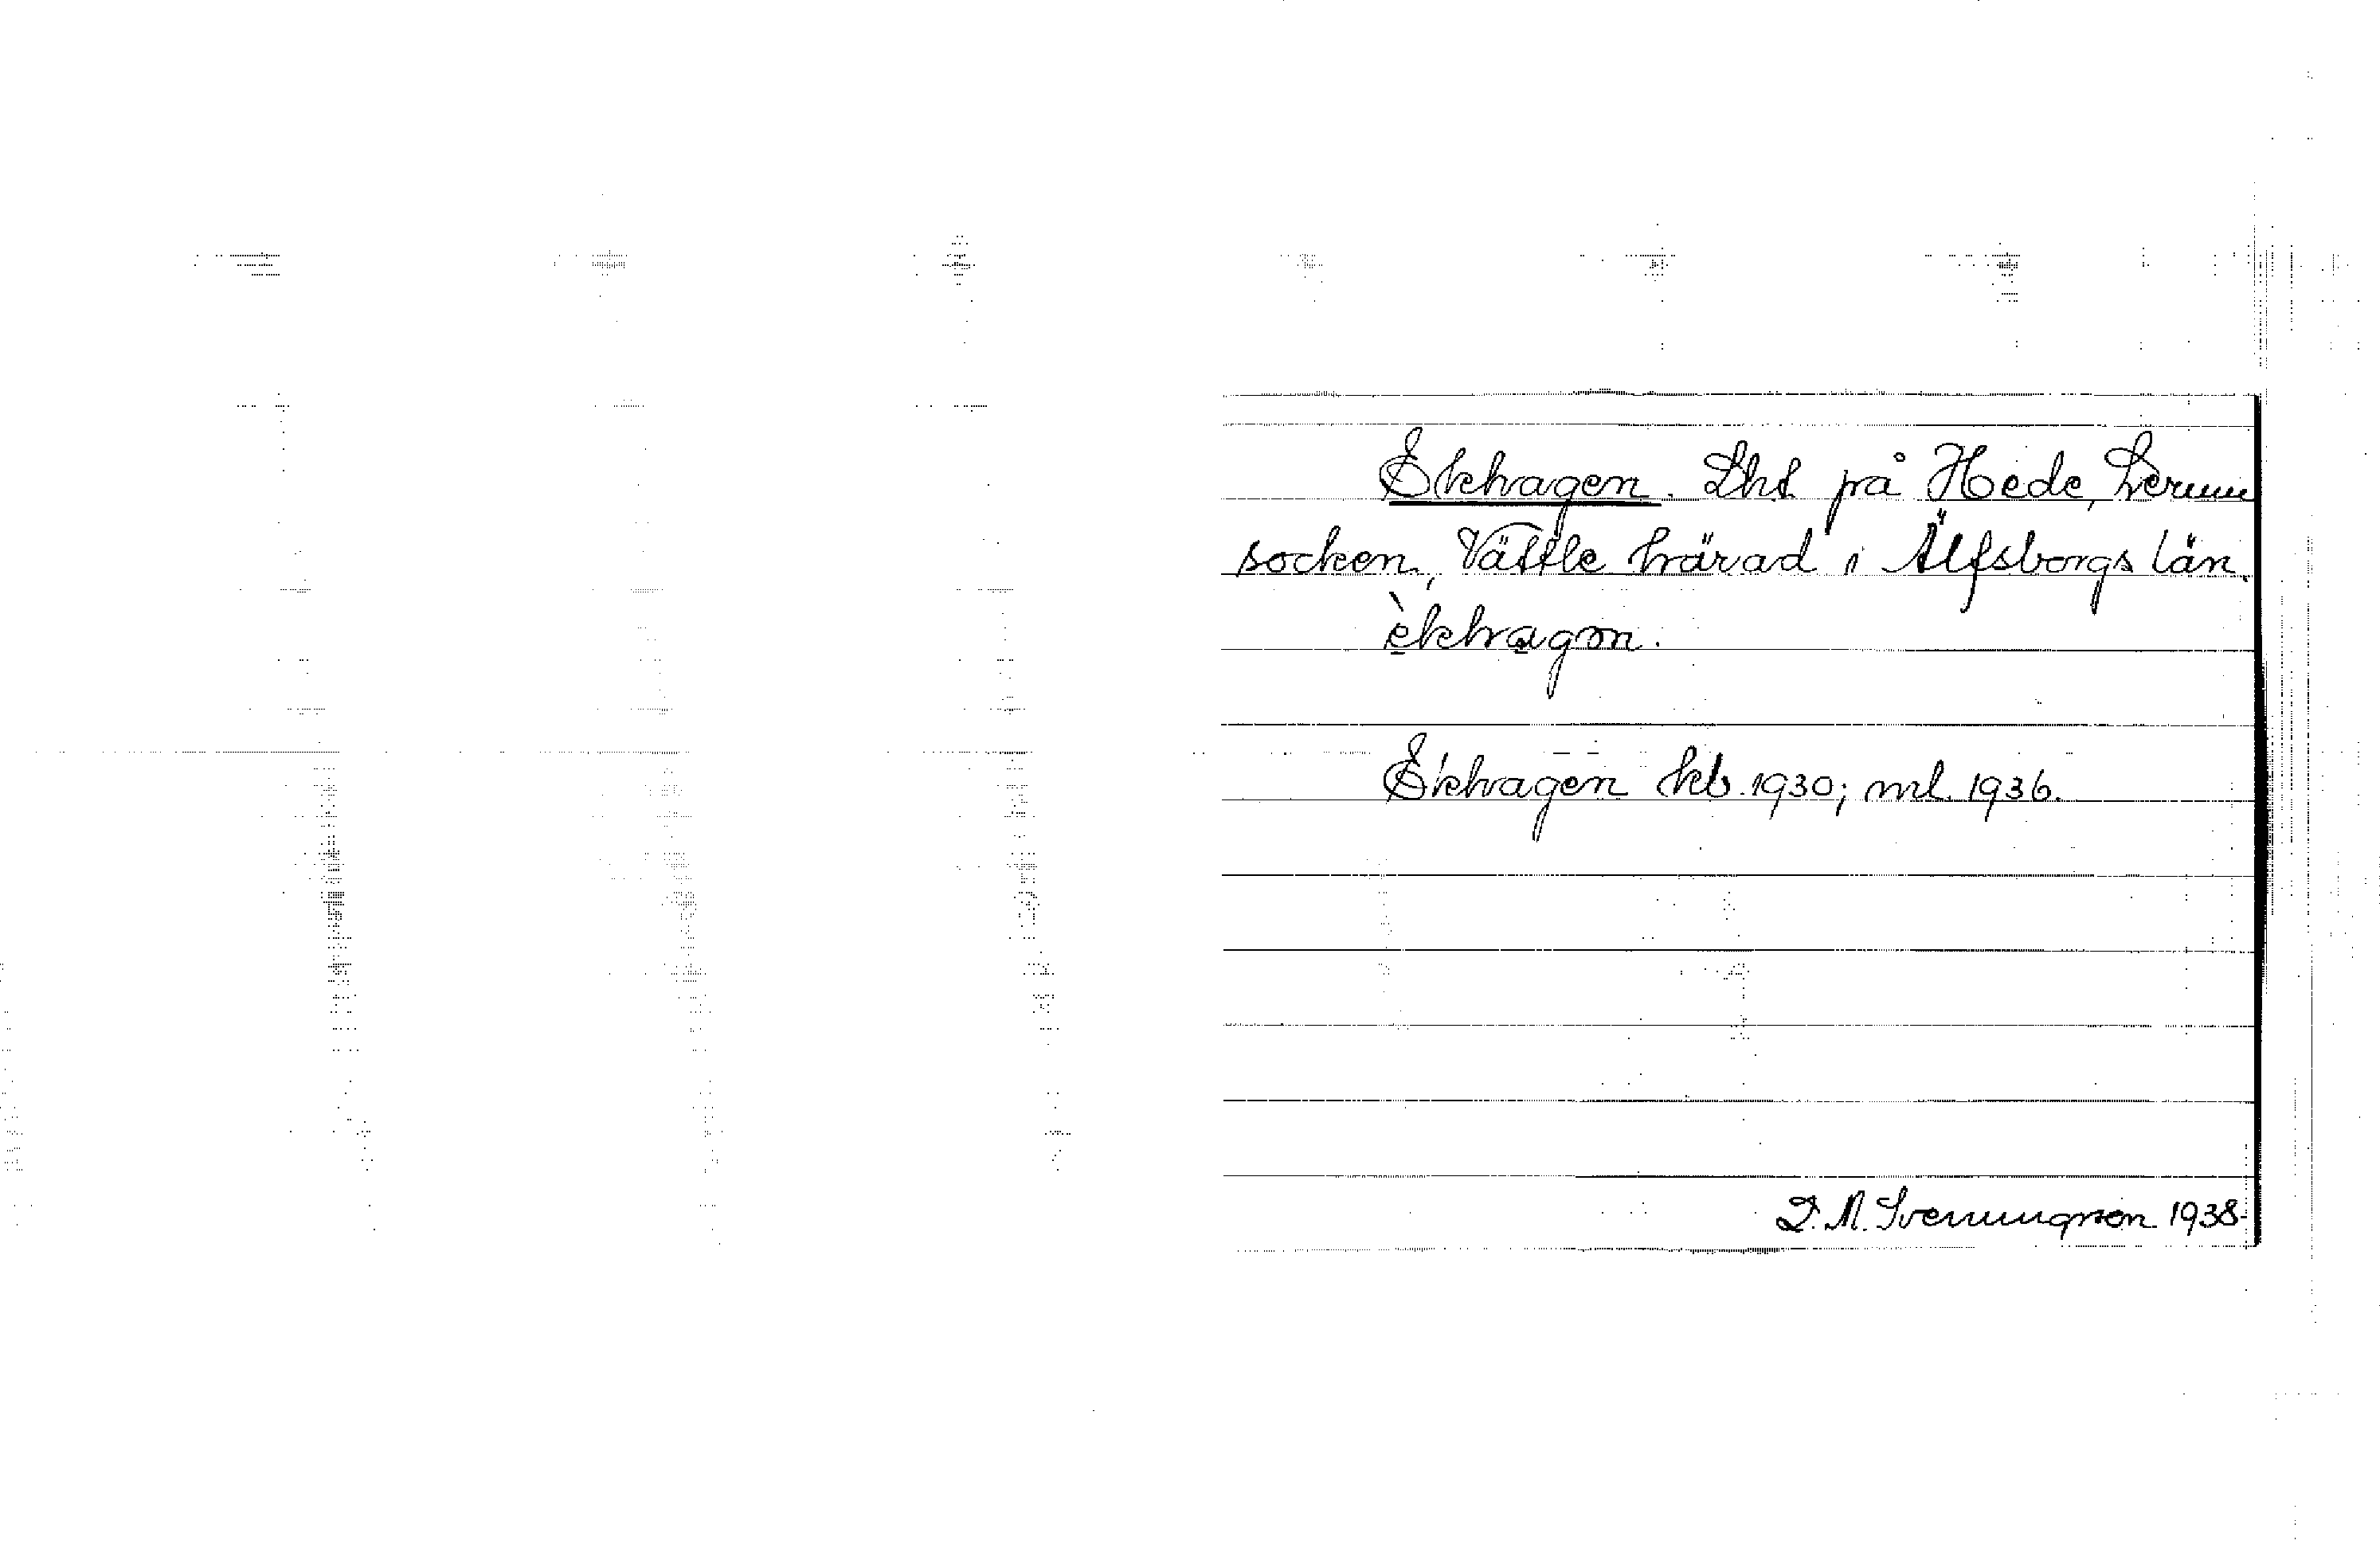 Ekhagen. Lht på Hede, Lerum
socken, Vättle härad i Älfsborgs län.
èkhagən.
Ekhagen kb. 1930; ml. 1936.
D. A. Svenungsson 1938.